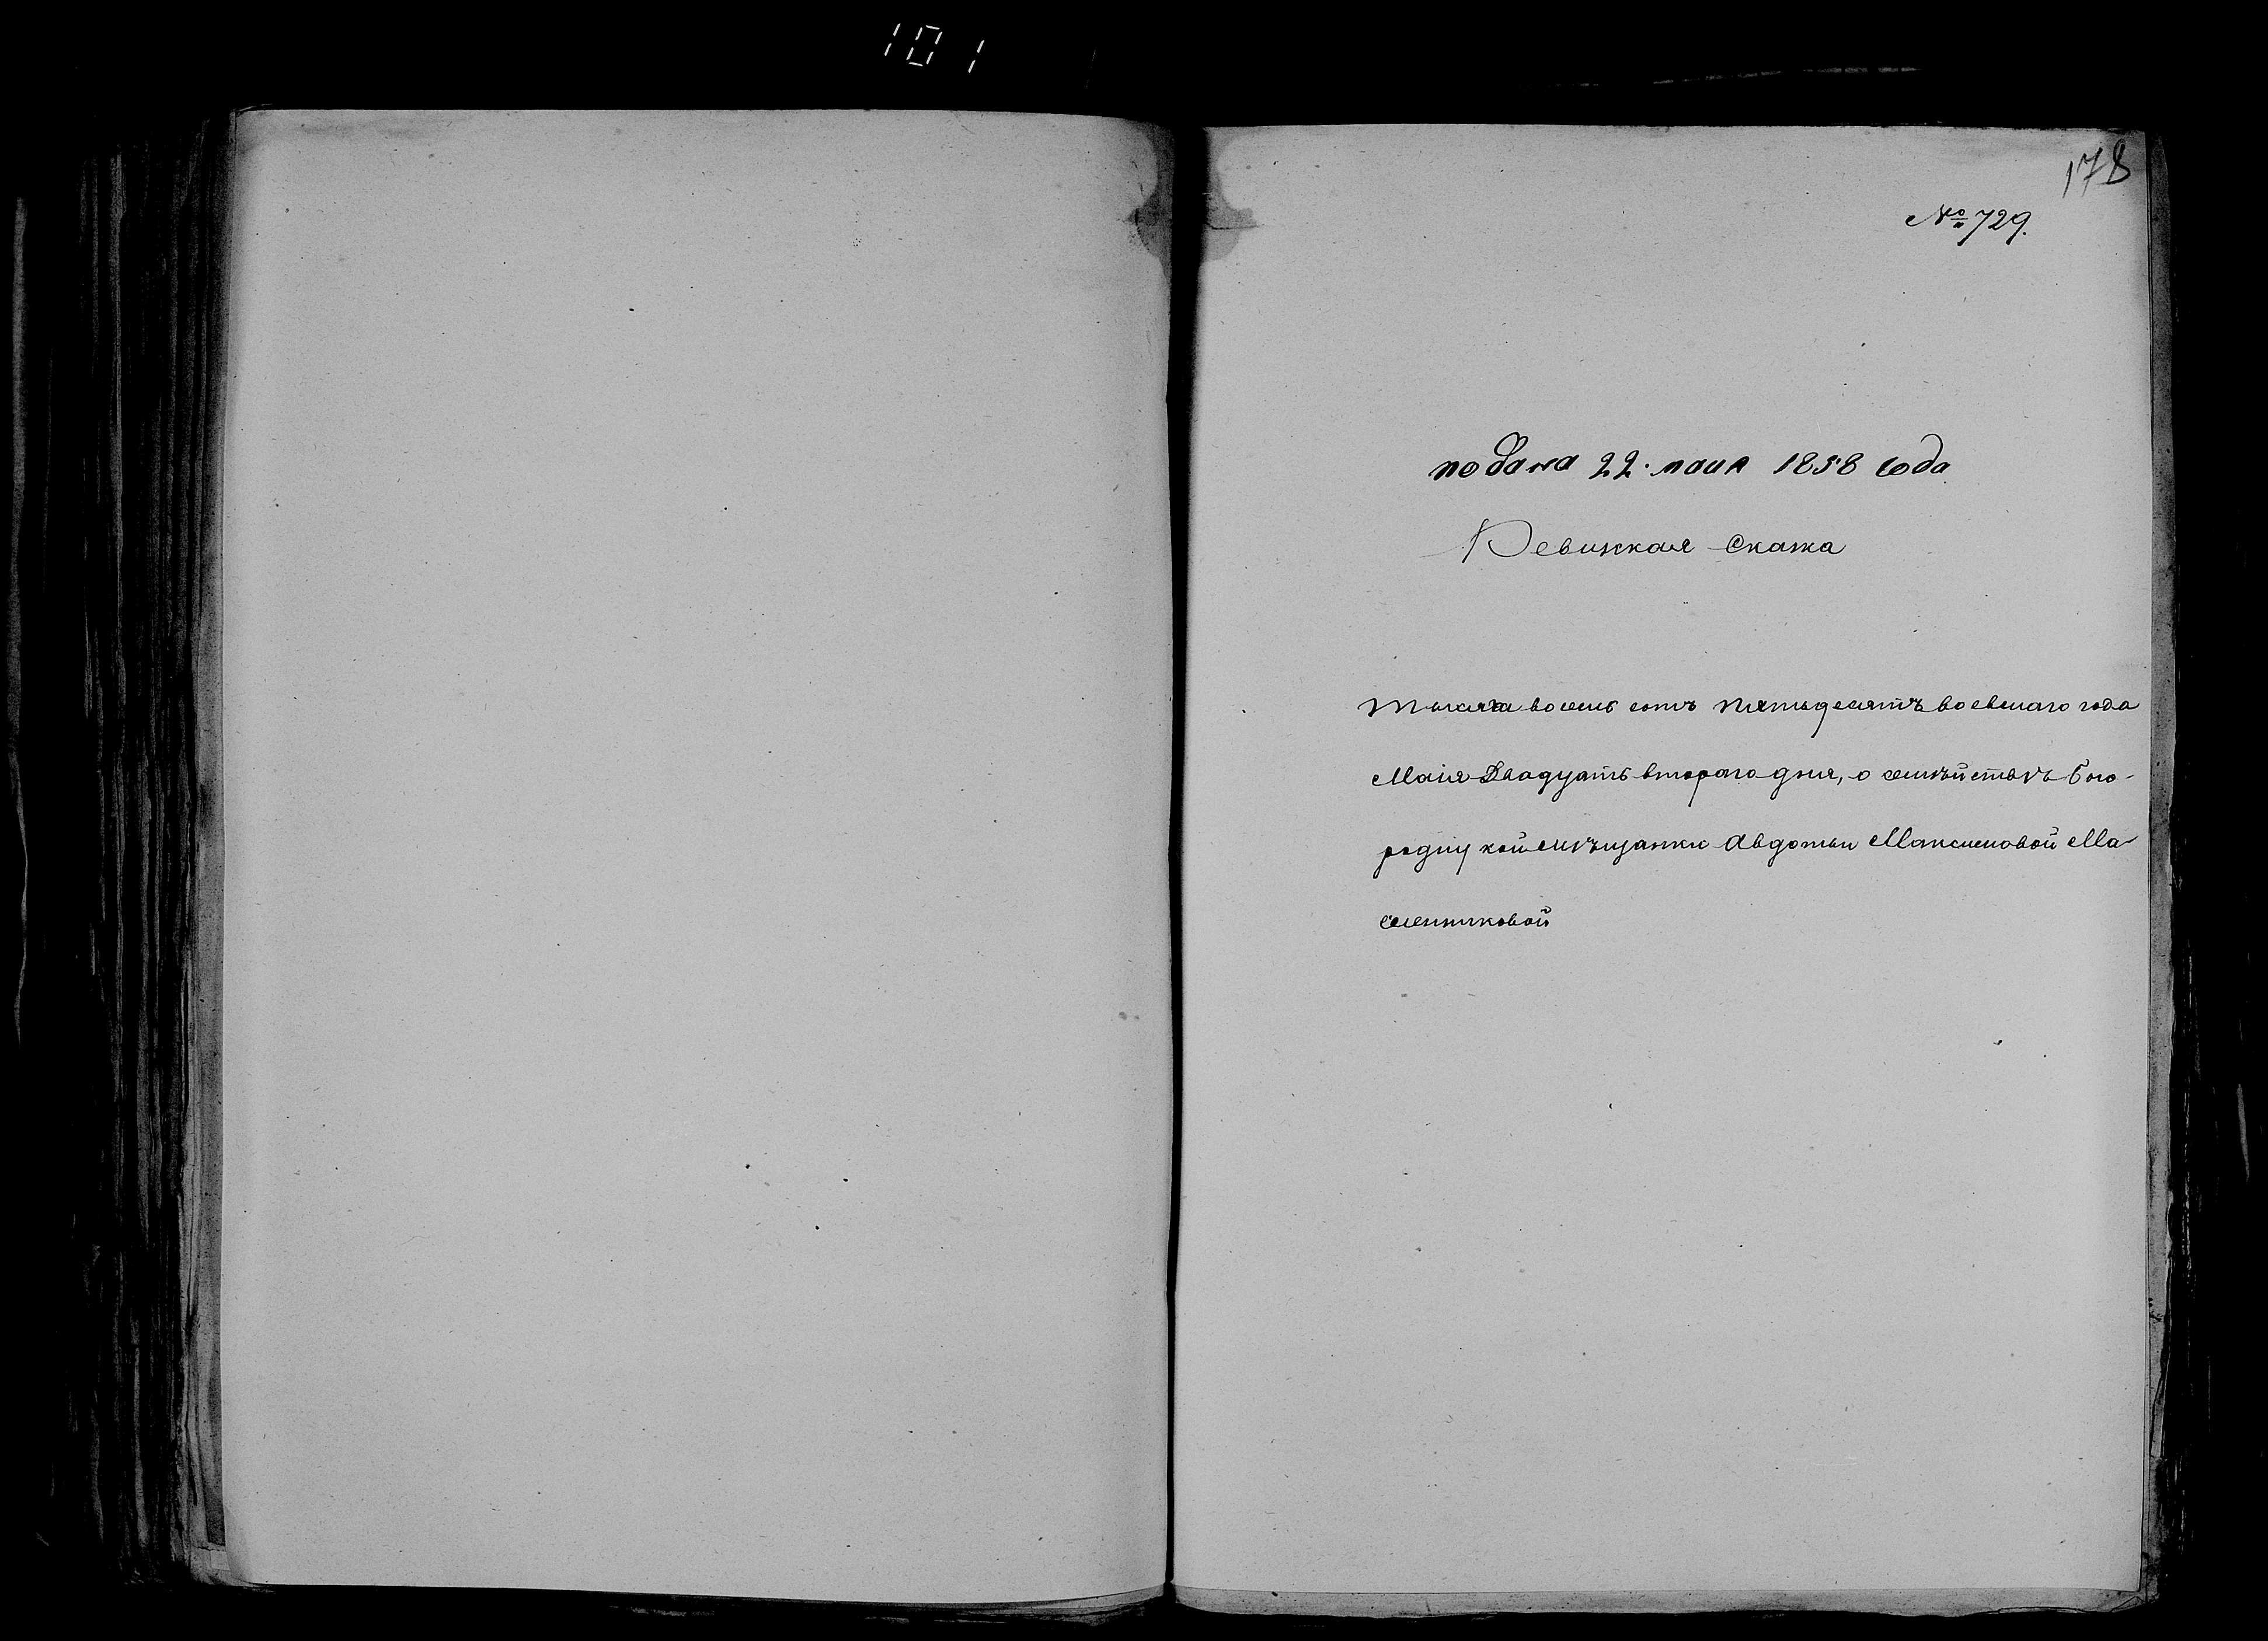 101
178
№ 729.
подана 22 маия 1858 года
Ревизская Сказка
Тысяча восемь сотъ пятьдесятъ восьмаго года
Маія Двадцать втораго дня, о семѣйствѣ Бого-
родицкой мѣщанки Авдотьи Максимовой Ма-
сленниковой